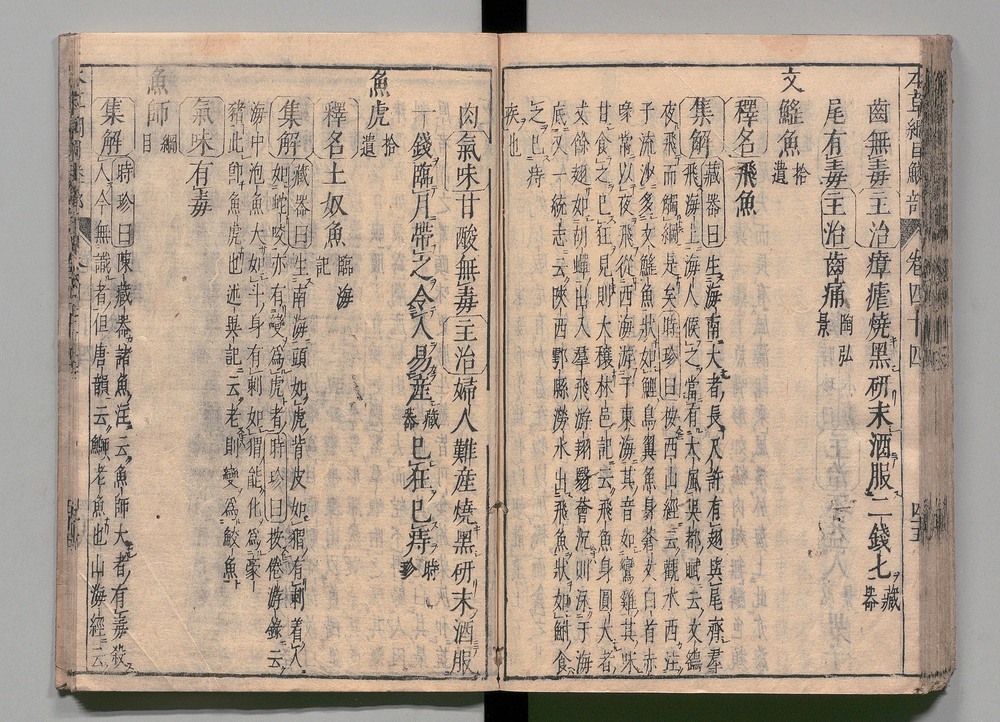 本草綱目鱗部 卷四十四 四五
齒無毒主治瘴瘧燒黑研末酒服二錢匕藏器
尾有毒主治齒痛陶弘景
文鰩魚拾遺
釋名飛魚
集解藏器曰生海南大者長尺許有翅與尾齊羣
飛海上海人候之當有大風吳都賦云文鰩
夜飛而觸綱是矣時珍曰按西山經云觀水西注
于流沙多文鰩魚狀如鯉鳥翼魚身蒼文白首赤
喙常以夜飛從西海游于東海其音如鸞雞其味
甘食之已狂見則大穰林邑記云飛魚身圓大者
丈餘翅如胡蟬出入羣飛游翔翳薈沉則泳于海
底又一統志云陝西鄠縣澇水出飛魚狀如鮒食
之已痔
疾也
肉氣味甘酸無毒主治婦人難産燒黑研末酒服
一錢臨月帶之令人易産藏器已狂已痔時珍
魚虎拾遺
釋名土奴魚臨海記
集解藏器曰生南海頭如虎背皮如猬有刺着人
如蛇咬亦有變爲虎者時珍曰按倦游錄云
海中泡魚大如斗身有刺如猬能化爲豪
豬此即魚虎也述異記云老則變爲鮫魚
氣味有毒
魚師綱目
集解時珍曰陳藏器諸魚注云魚師大者有毒殺
人今無識者但唐韻云鰤老魚也山海經云